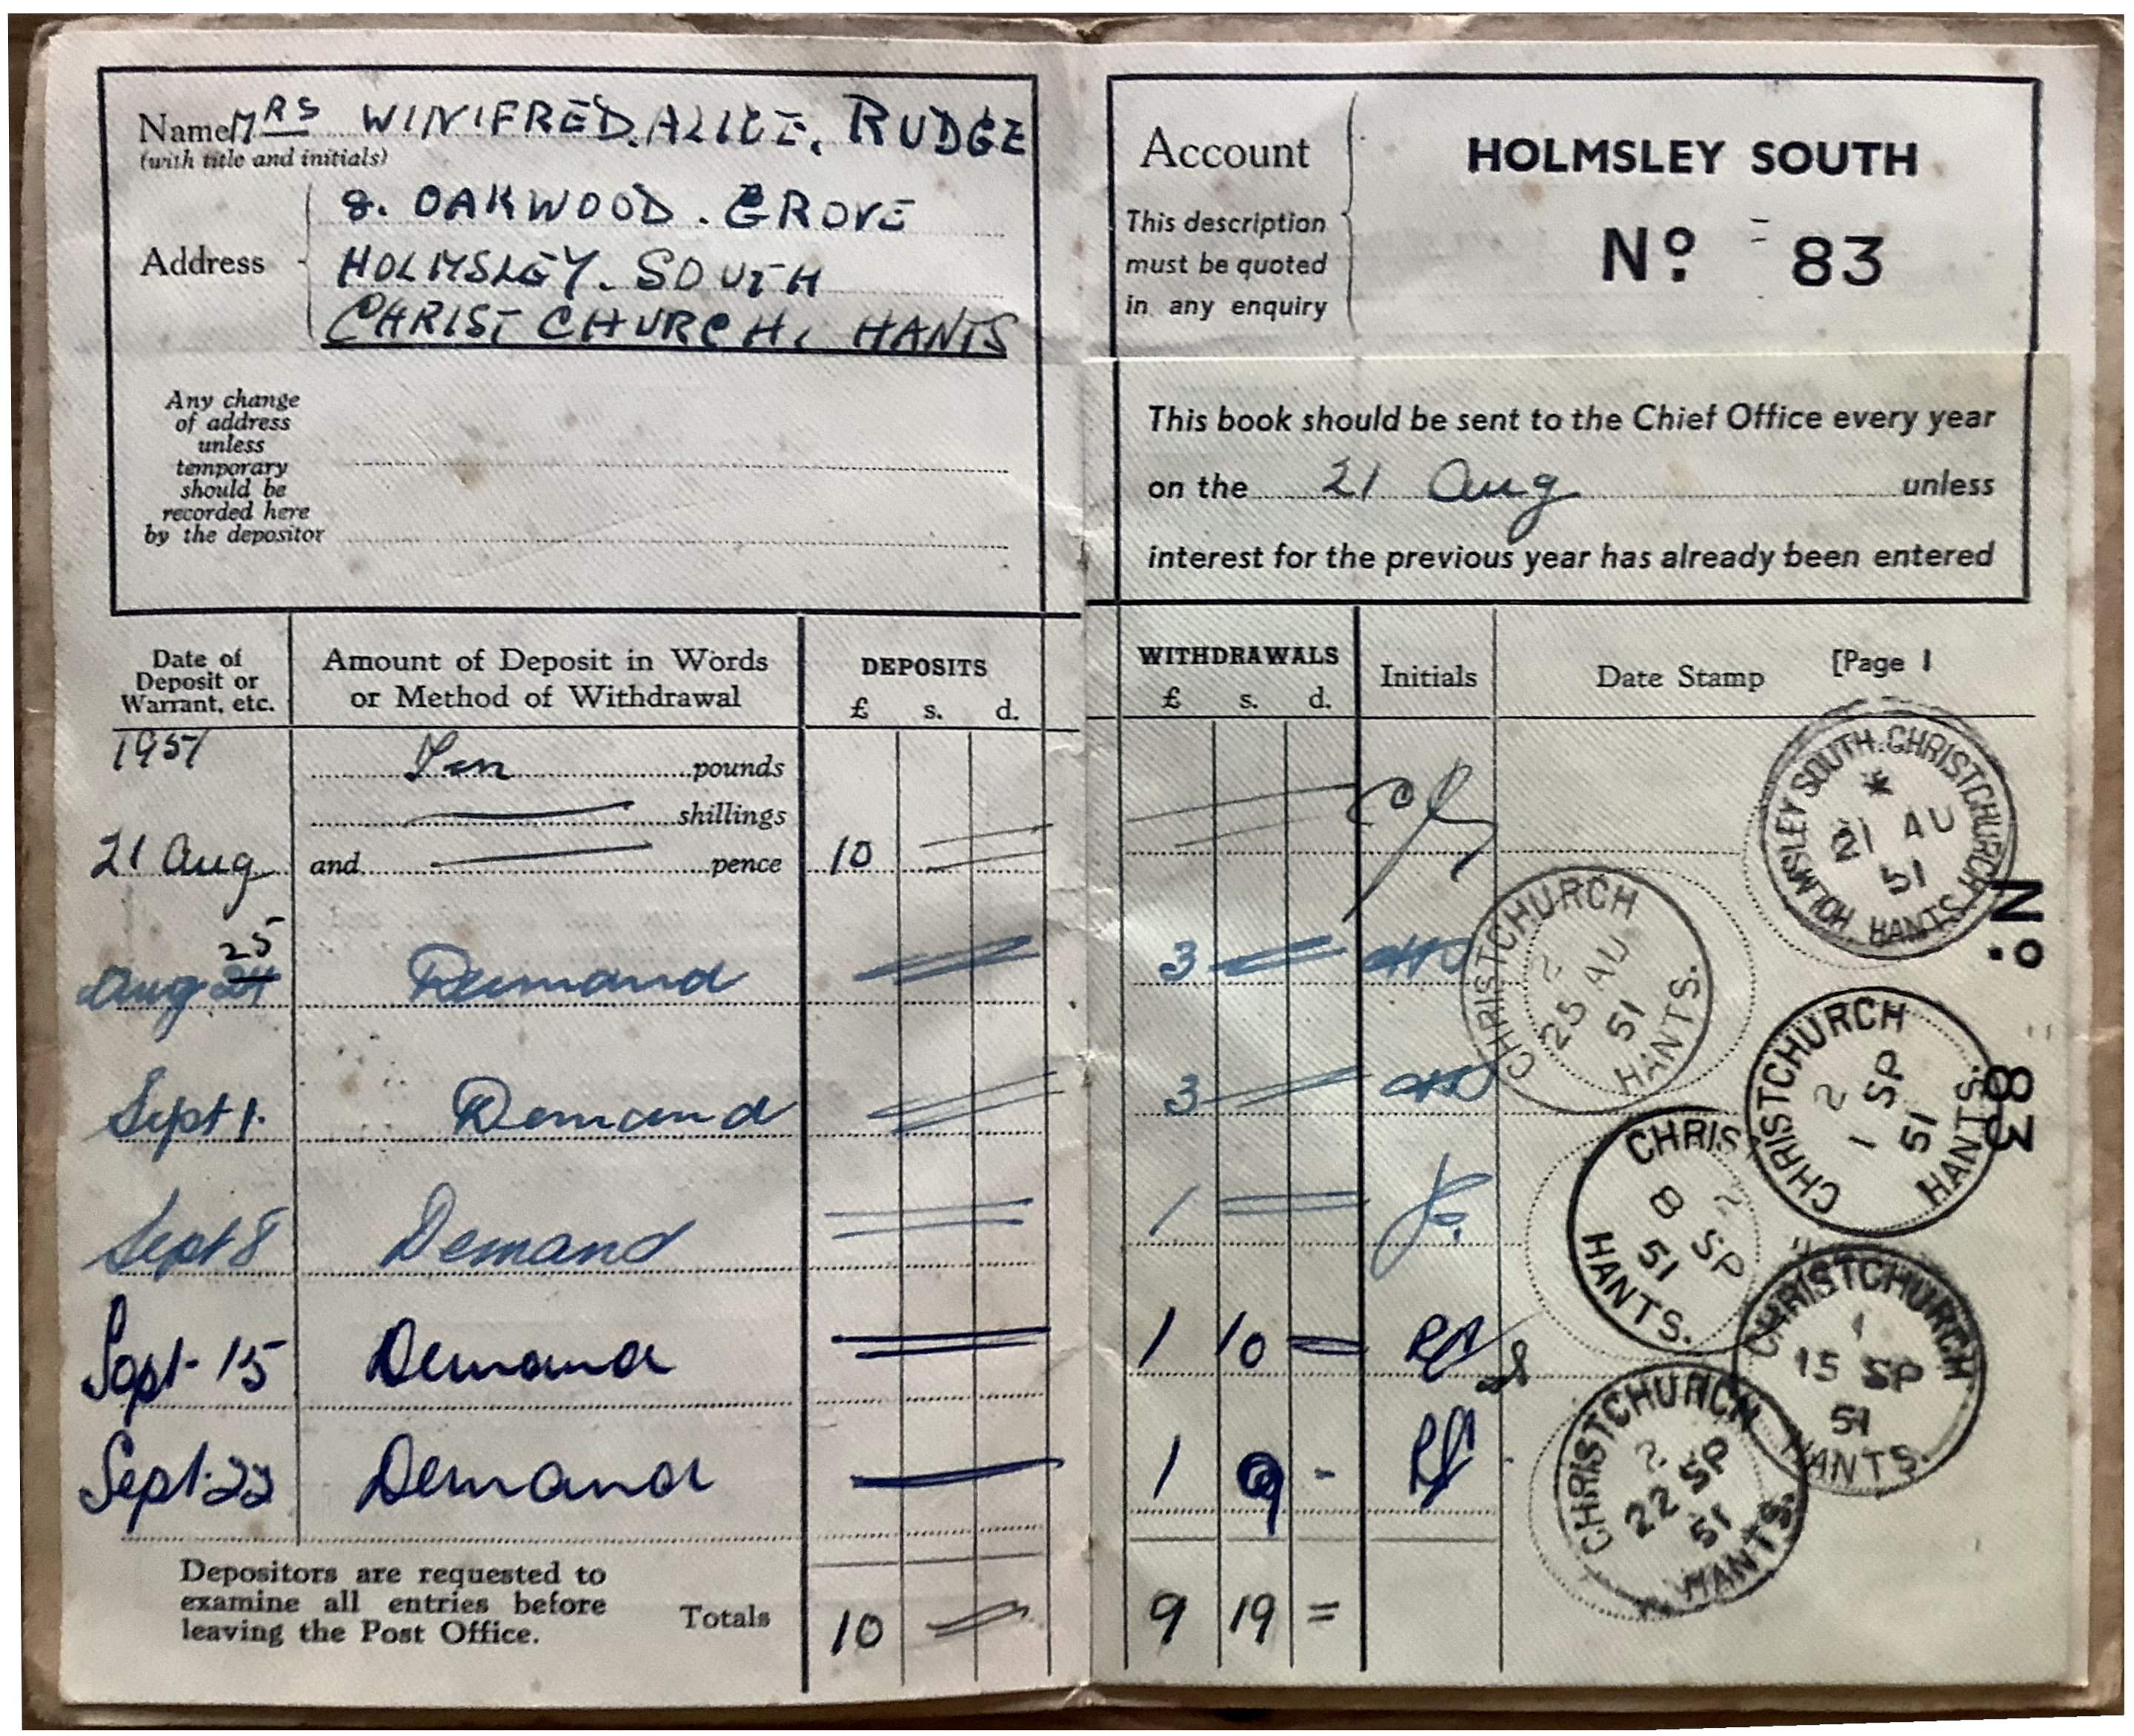 Name Mrs WINIFRED. ALICE. RUDGE
(with title and initials)
Address
8. OAKWOOD. GROVE
HOLMSLEY. SOUTH
CHRISTCHURCH, HANTS
Any change
of address
unless
temporary
should be
recorded here
by the depositor
Account
This description
must be quoted
in any enquiry
HOLMSLEY SOUTH
No = 83
This book should be sent to the Chief Office every year
on the 21 Aug unless
interest for the previous year has already been entered
Date of
Deposit or
Warrant, etc.
Amount of Deposit in Words
or Method of Withdrawal
DEPOSITS
£ s. d.
WITHDRAWALS
£ s. d.
Initials
Date Stamp
[Page 1
1951
Ten pounds
shillings
21 Aug and pence 10
HOLMSLEY SOUTH. CHRISTCHURCH HANTS
21 AU
51
25
Aug 24 Demand = 3 =
CHRISTCHURCH HANTS.
2
25 AU
51
No 83
Sept 1. Demand = 3 =
CHRISTCHURCH HANTS.
2
1 SP
51
Sept 8 Demand = 1 =
CHRIS
HANTS.
2
8 SP
51
Sept 15 Demand = 1 10 =
CHRISTCHURCH HANTS.
1
15 SP
51
Sept. 22 Demand — 1 9 -
CHRISTCHURCH HANTS.
2
22 SP
51
Depositors are requested to
examine all entries before
leaving the Post Office.
Totals 10 = 9 19 =